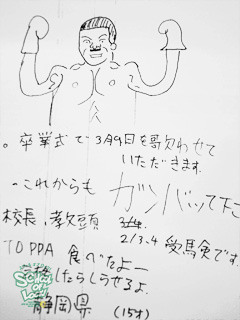 。卒業式で3月9日を歌わせて
いただきます。
。これからも ガンバって下さ
校長、教頭
2/3.4 受験です。
TOPPA 食べたよー
したらしらせるよ。
静岡県 (15才)